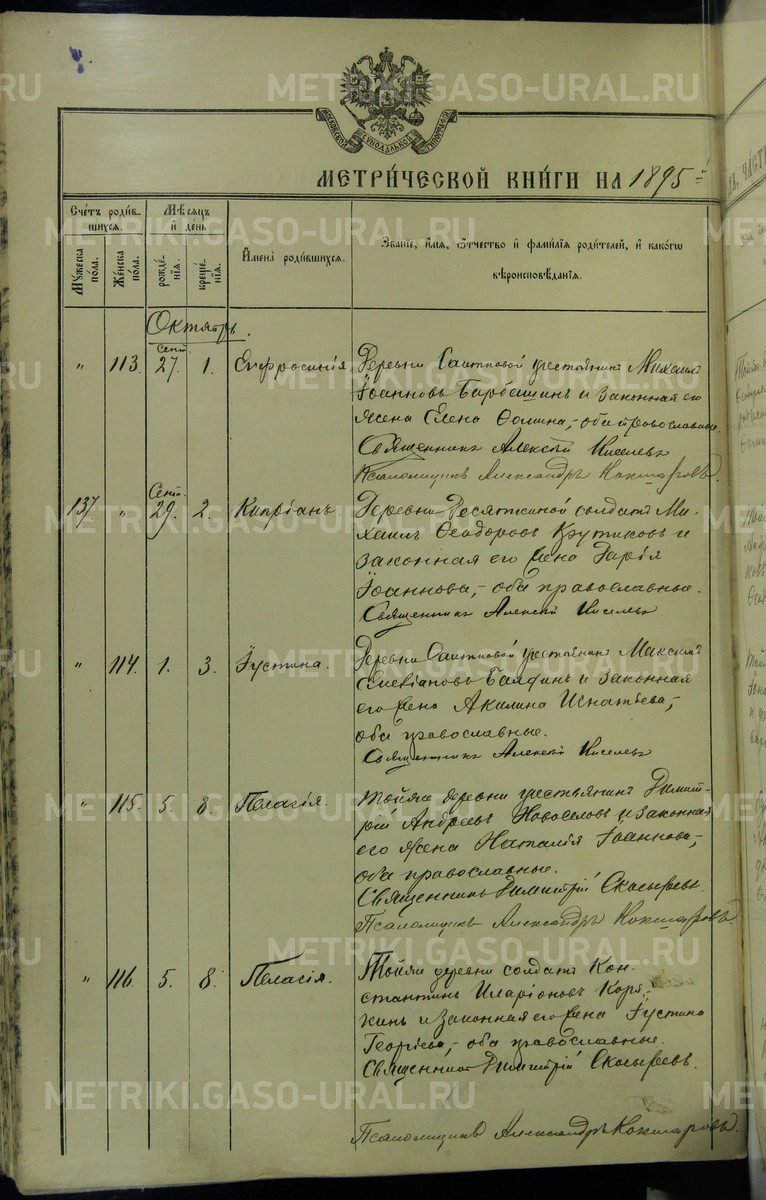 METRIKI.GASO-URAL.RU
МОСКОВСКОЙ СѴНОДАЛЬНОЙ ТИПОГРАФІИ
МЕТРИ́ЧЕСКОЙ КНИ́ГИ НА 1895 й
Сче́тъ роди́в-
шихся.
Мѣ́сяцъ
и҆ де́нь
Мꙋ́жеска по́ла.
Же́нска по́ла.
рожде́-
нїѧ.
креще́-
нїѧ.
И҆мена̀ роди́вшихся.
Зва́нїе, и҆́мя, ѻ҆́тчество и҆ фами́лїя роди́телей, и҆ како́гѡ
вѣроисповѣ́данїя.
Октябрь.
" 113. Сент. 27. 1. Евфросинія.
Деревни Саитковой крестьянинъ Михаилъ
Іоанновъ Барбашинъ и законная его
жена Елена Ѳомина,- оба православные.
Священникъ Алексій Киселевъ
Псаломщикъ Александръ Кокшаровъ.
137. " Сент. 29. 2. Кипріанъ.
Деревни Десяткиной солдатъ Ми-
хаилъ Ѳеодоровъ Крутиковъ и
законная его жена Дарія
Іоаннова,- оба православные.
Священникъ Алексій Киселевъ
" 114. 1. 3. Іустина.
Деревни Саитковой крестьянинъ Максимъ
и законная
его жена Акилина Игнатьева,-
оба православные.
Священникъ Алексій Киселевъ
" 115. 5. 8. Пелагія.
Тойже деревни крестьянинъ Димит-
рій Андреевъ Новоселовъ и законная
его жена Наталія Іоаннова,-
оба православные.
Священникъ Димитрій Скосыревъ.
Псаломщикъ Александръ Кокшаровъ.
" 116. 5. 8. Пелагія.
Тойже деревни солдатъ Кон-
стантинъ Иларіоновъ Коря-
кинъ и законная его жена Іустина
Георгіева,- оба православные.
Священникъ Димитрій Скосыревъ.
Псаломщикъ Александръ Кокшаровъ.